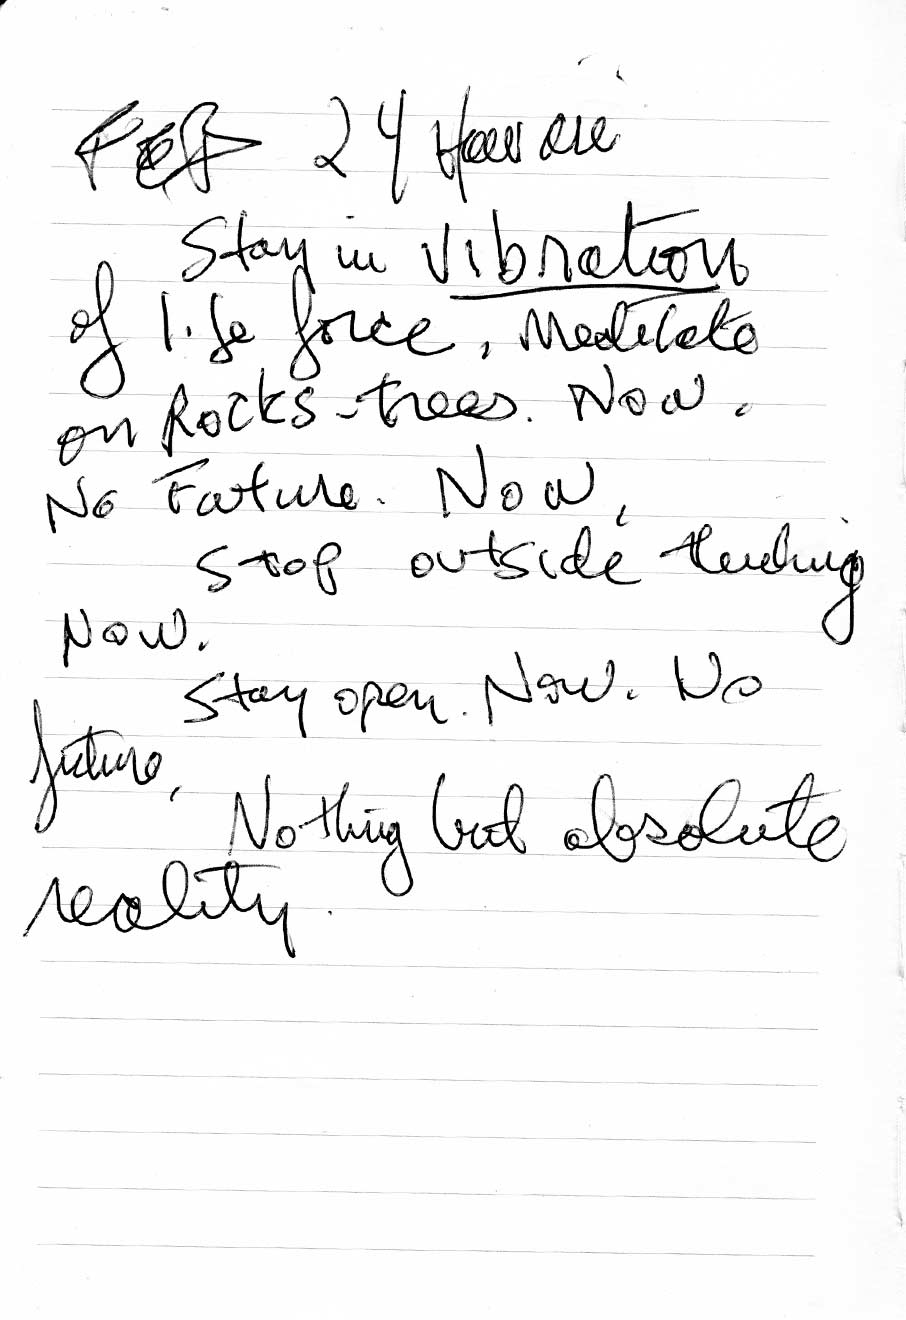 FEB 24
Stay in vibration
of life force, Meditate
on Rocks - trees. Now.
No Future. Now,
Stop outside thinking
Now.
Stay open. Now. No
future,
Nothing but absolute
reality.